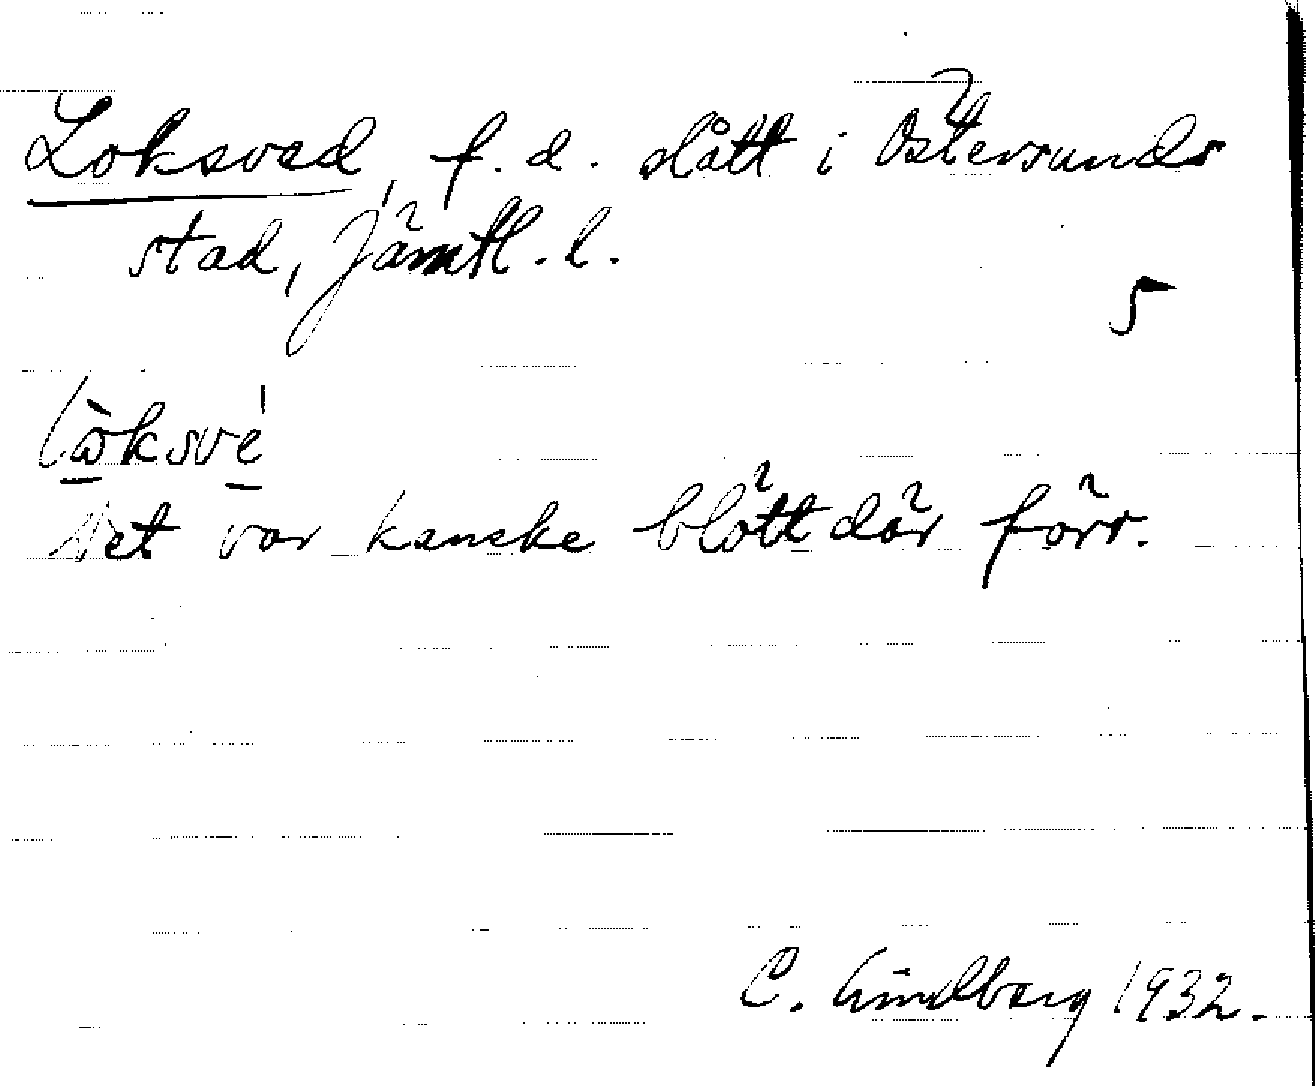 Loksved, f.d. slått i Östersunds
stad, Jämtl. l.
5
lòksve̠
Det var kanske blött där förr.
C. Lindberg 1932.